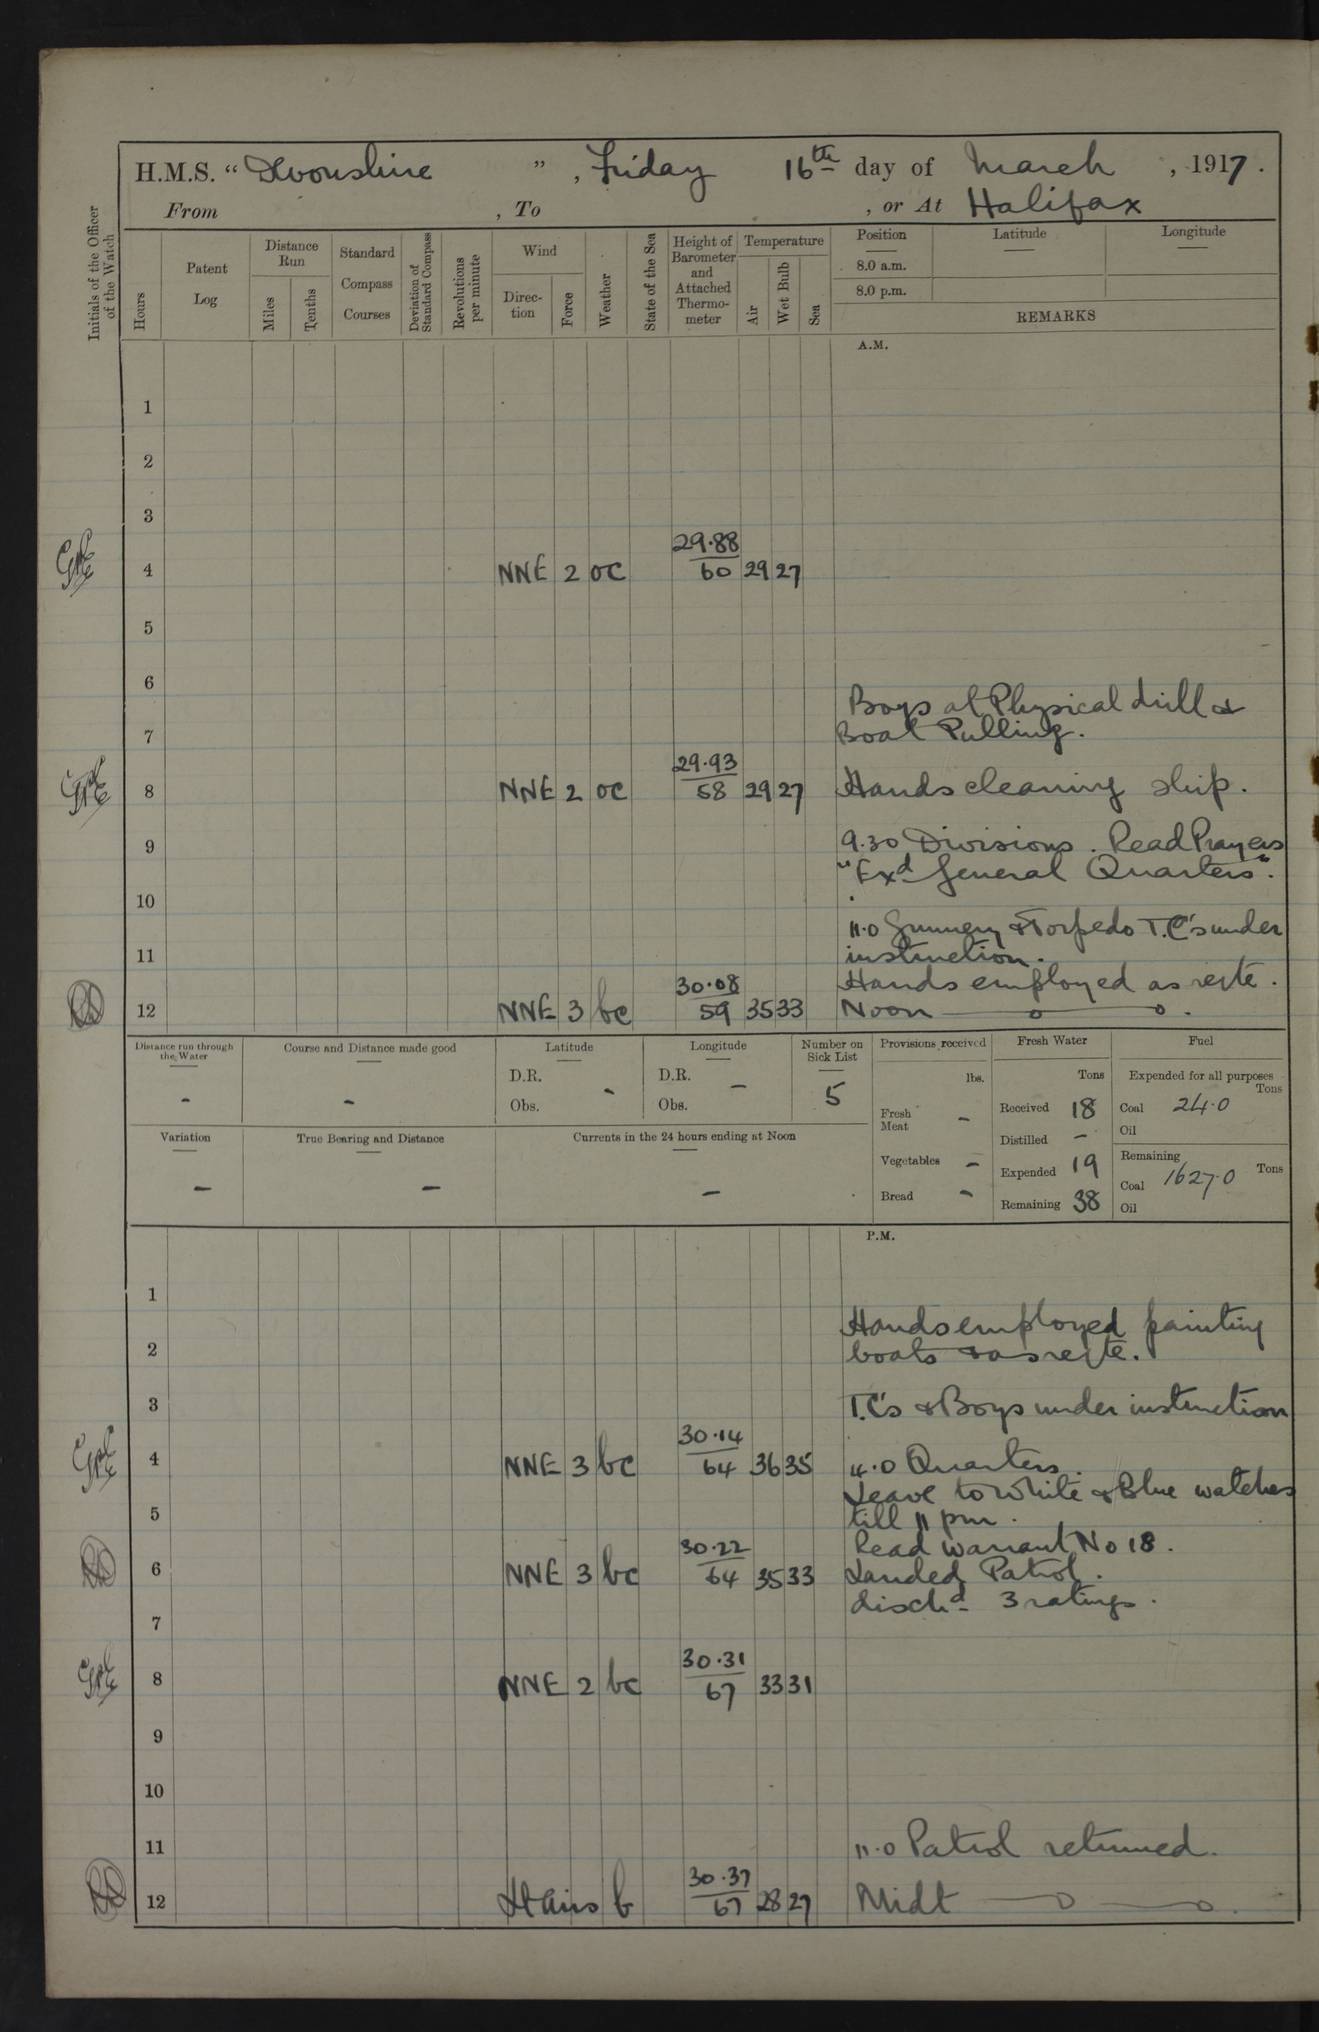 H.M.S. “Devonshire ” , Friday 16th day of March , 1917.
From , To , or At Halifax
Initials of the Officer of the Watch
Hours
Patent Log
Distance Run
Miles
Tenths
Standard Compass Courses
Deviation of Standard Compass
Revolutions per minute
Wind
Direc-tion
Force
Weather
State of the Sea
Height of Barometer and Attached Thermo-meter
Temperature
Air
Wet Bulb
Sea
Position Latitude Longitude
8.0 a.m.
8.0 p.m.
REMARKS
A.M.
1
2
3
29.88
4 NNE 2 oc 60 29 27
5
6
Boys at Physical drill &
7 Boat Pulling.
29.93
8 NNE 2 oc 58 29 27 Hands cleaning ship.
9 9.30 Divisions. Read Prayers
"Exd General Quarters".
10
11.0 Gunnery & Torpedo T.C's under
11 instruction.
30.08 Hands employed as reqte.
12 NNE 3 bc 59 35 33 Noon
Distance run through the Water
-
Course and Distance made good
-
Latitude
D.R.
Obs. -
Longitude
D.R. -
Obs.
Number on Sick List
5
Provisions received
lbs.
Fresh Meat -
Vegetables -
Bread -
Fresh Water
Tons
Received 18
Distilled -
Expended 19
Remaining 38
Fuel
Expended for all purposes
Tons
Coal 24.0
Oil
Remaining
Coal 1627.0 Tons
Oil
Variation
-
True Bearing and Distance
-
Currents in the 24 hours ending at Noon
-
P.M.
1
Hands employed painting
2 boats & as reqte.
3 T.C's & Boys under instruction
30.14
4 NNE 3 bc 64 36 35 4.0 Quarters.
Leave to White & Blue watches
5 till 11 pm.
30.22 Read Warrant No 18.
6 NNE 3 bc 64 35 33 Landed Patrol.
dischd 3 ratings.
7
30.31
8 NNE 2 bc 67 33 31
9
10
11 11.0 Patrol returned.
30.37
12 Lt airs b 67 28 27 Midt